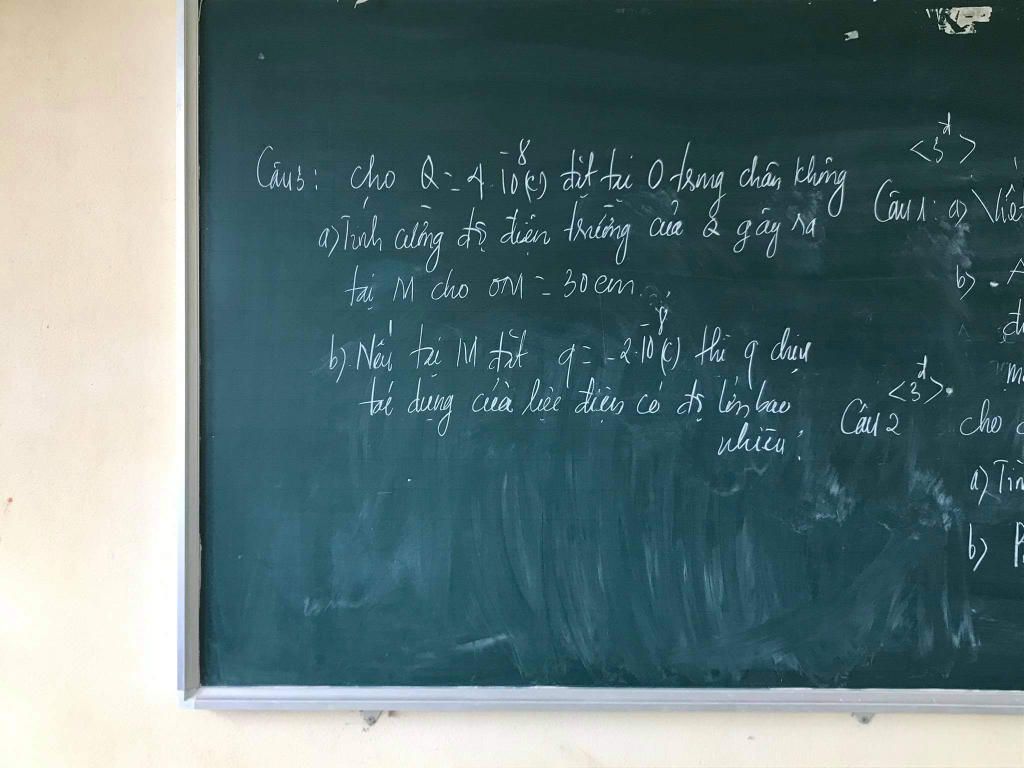 Câu 3: cho Q = 4.10⁻⁸(C) đặt tại O trong chân không
a) Tính cường độ điện trường của Q gây ra
tại M cho OM = 30cm.
b) Nếu tại M đặt q = -2.10⁻⁸(C) thì q chịu
tác dụng của lực điện có độ lớn bao
nhiêu?
<3đ>
Câu 1: a)
b)
<3đ>
Câu 2 cho
a)
b)